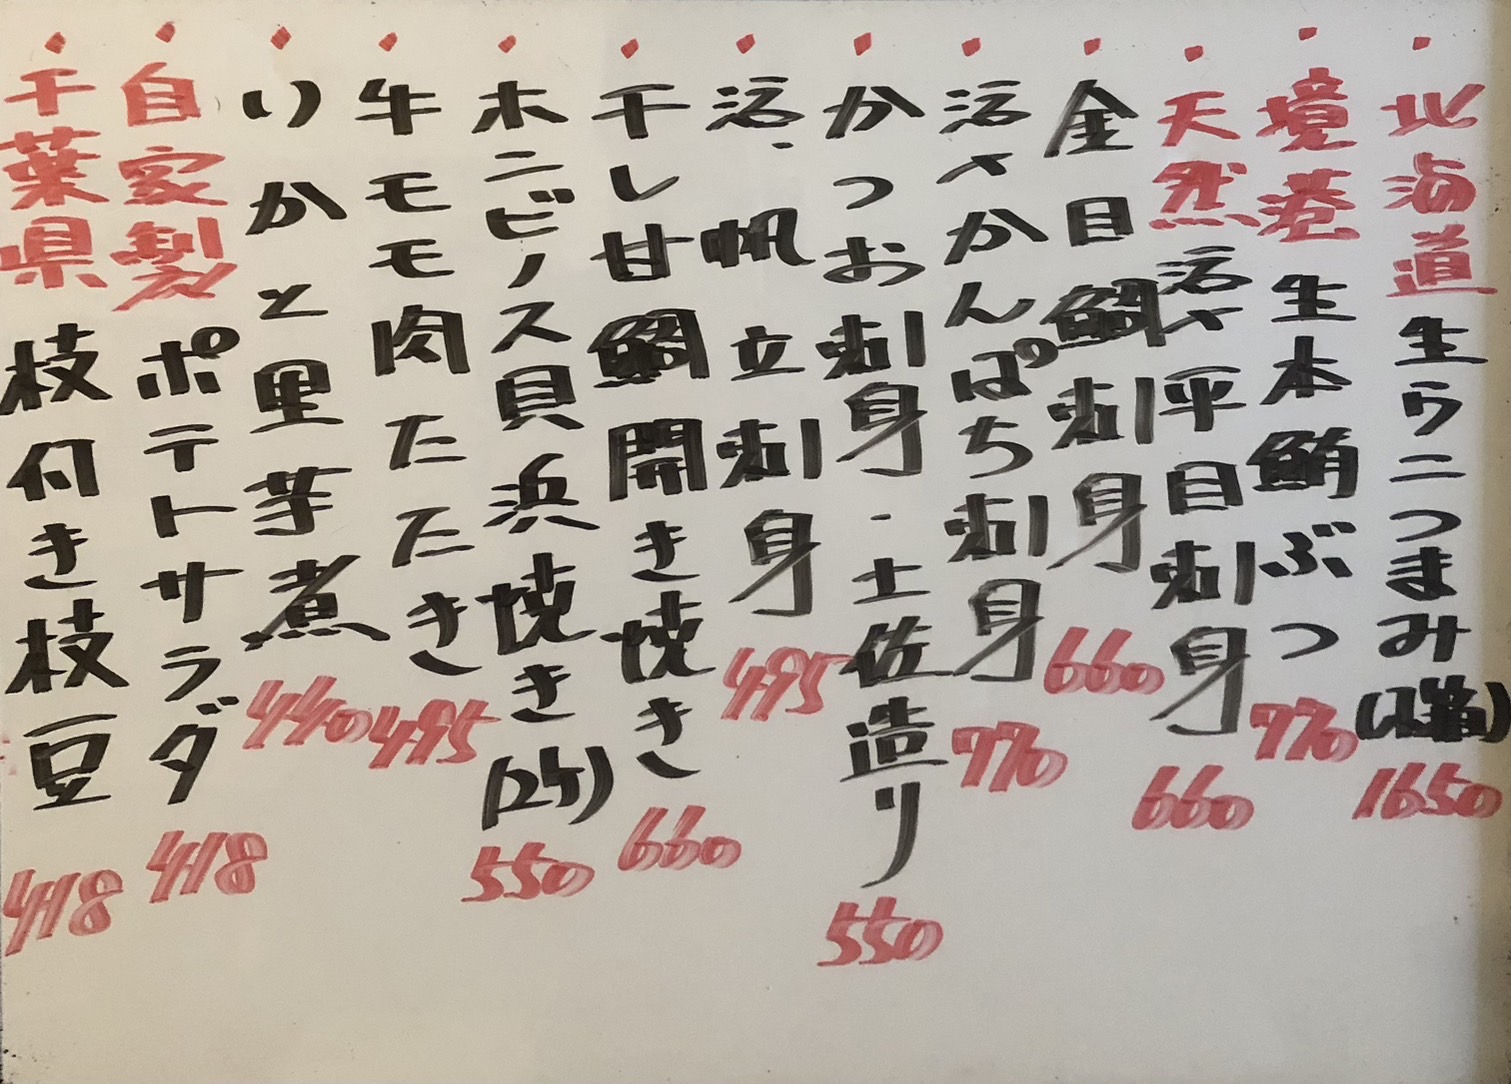 北海道生ウニつまみ(2貫)1650
境港生本鮪ぶつ770
天然活〆平目刺身660
金目鯛刺身660
活〆かんぱち刺身770
かつお刺身・土佐造り550
活・帆立刺身495
干し甘鯛開き焼き660
ホンビノス貝浜焼き(2ケ)550
牛モモ肉たたき495
いかと里芋煮440
自家製ポテトサラダ418
千葉県枝付き枝豆418